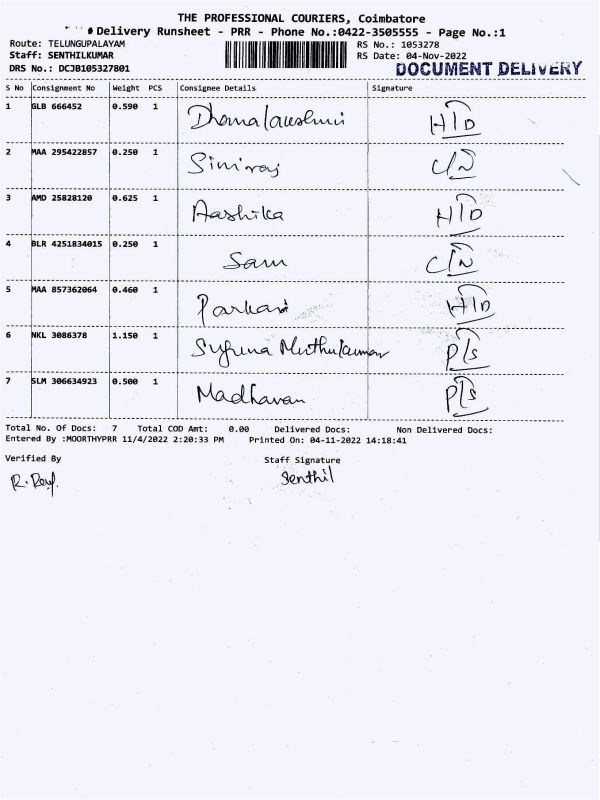 THE PROFESSIONAL COURIERS, Coimbatore
Delivery Runsheet - PRR - Phone No.:0422-3505555 - Page No.:1
Route: TELUNGUPALAYAM RS No.: 1053278
Staff: SENTHILKUMAR RS Date: 04-Nov-2022
DRS No.: DCJB105327801 DOCUMENT DELIVERY
S No Consignment No Weight PCS Consignee Details Signature
1 GLB 666452 0.590 1 H/D
2 MAA 295422857 0.250 1 C/N
3 AMD 25828120 0.625 1 Aashika H/D
4 BLR 4251834015 0.250 1 Sam C/N
5 MAA 857362064 0.460 1 H/D
6 NKL 3086378 1.150 1 Muthukumar P/s
7 SLM 306634923 0.500 1 Madhavan P/s
Total No. Of Docs: 7 Total COD Amt: 0.00 Delivered Docs: Non Delivered Docs:
Entered By :MOORTHYPRR 11/4/2022 2:20:33 PM Printed On: 04-11-2022 14:18:41
Verified By Staff Signature
Senthil